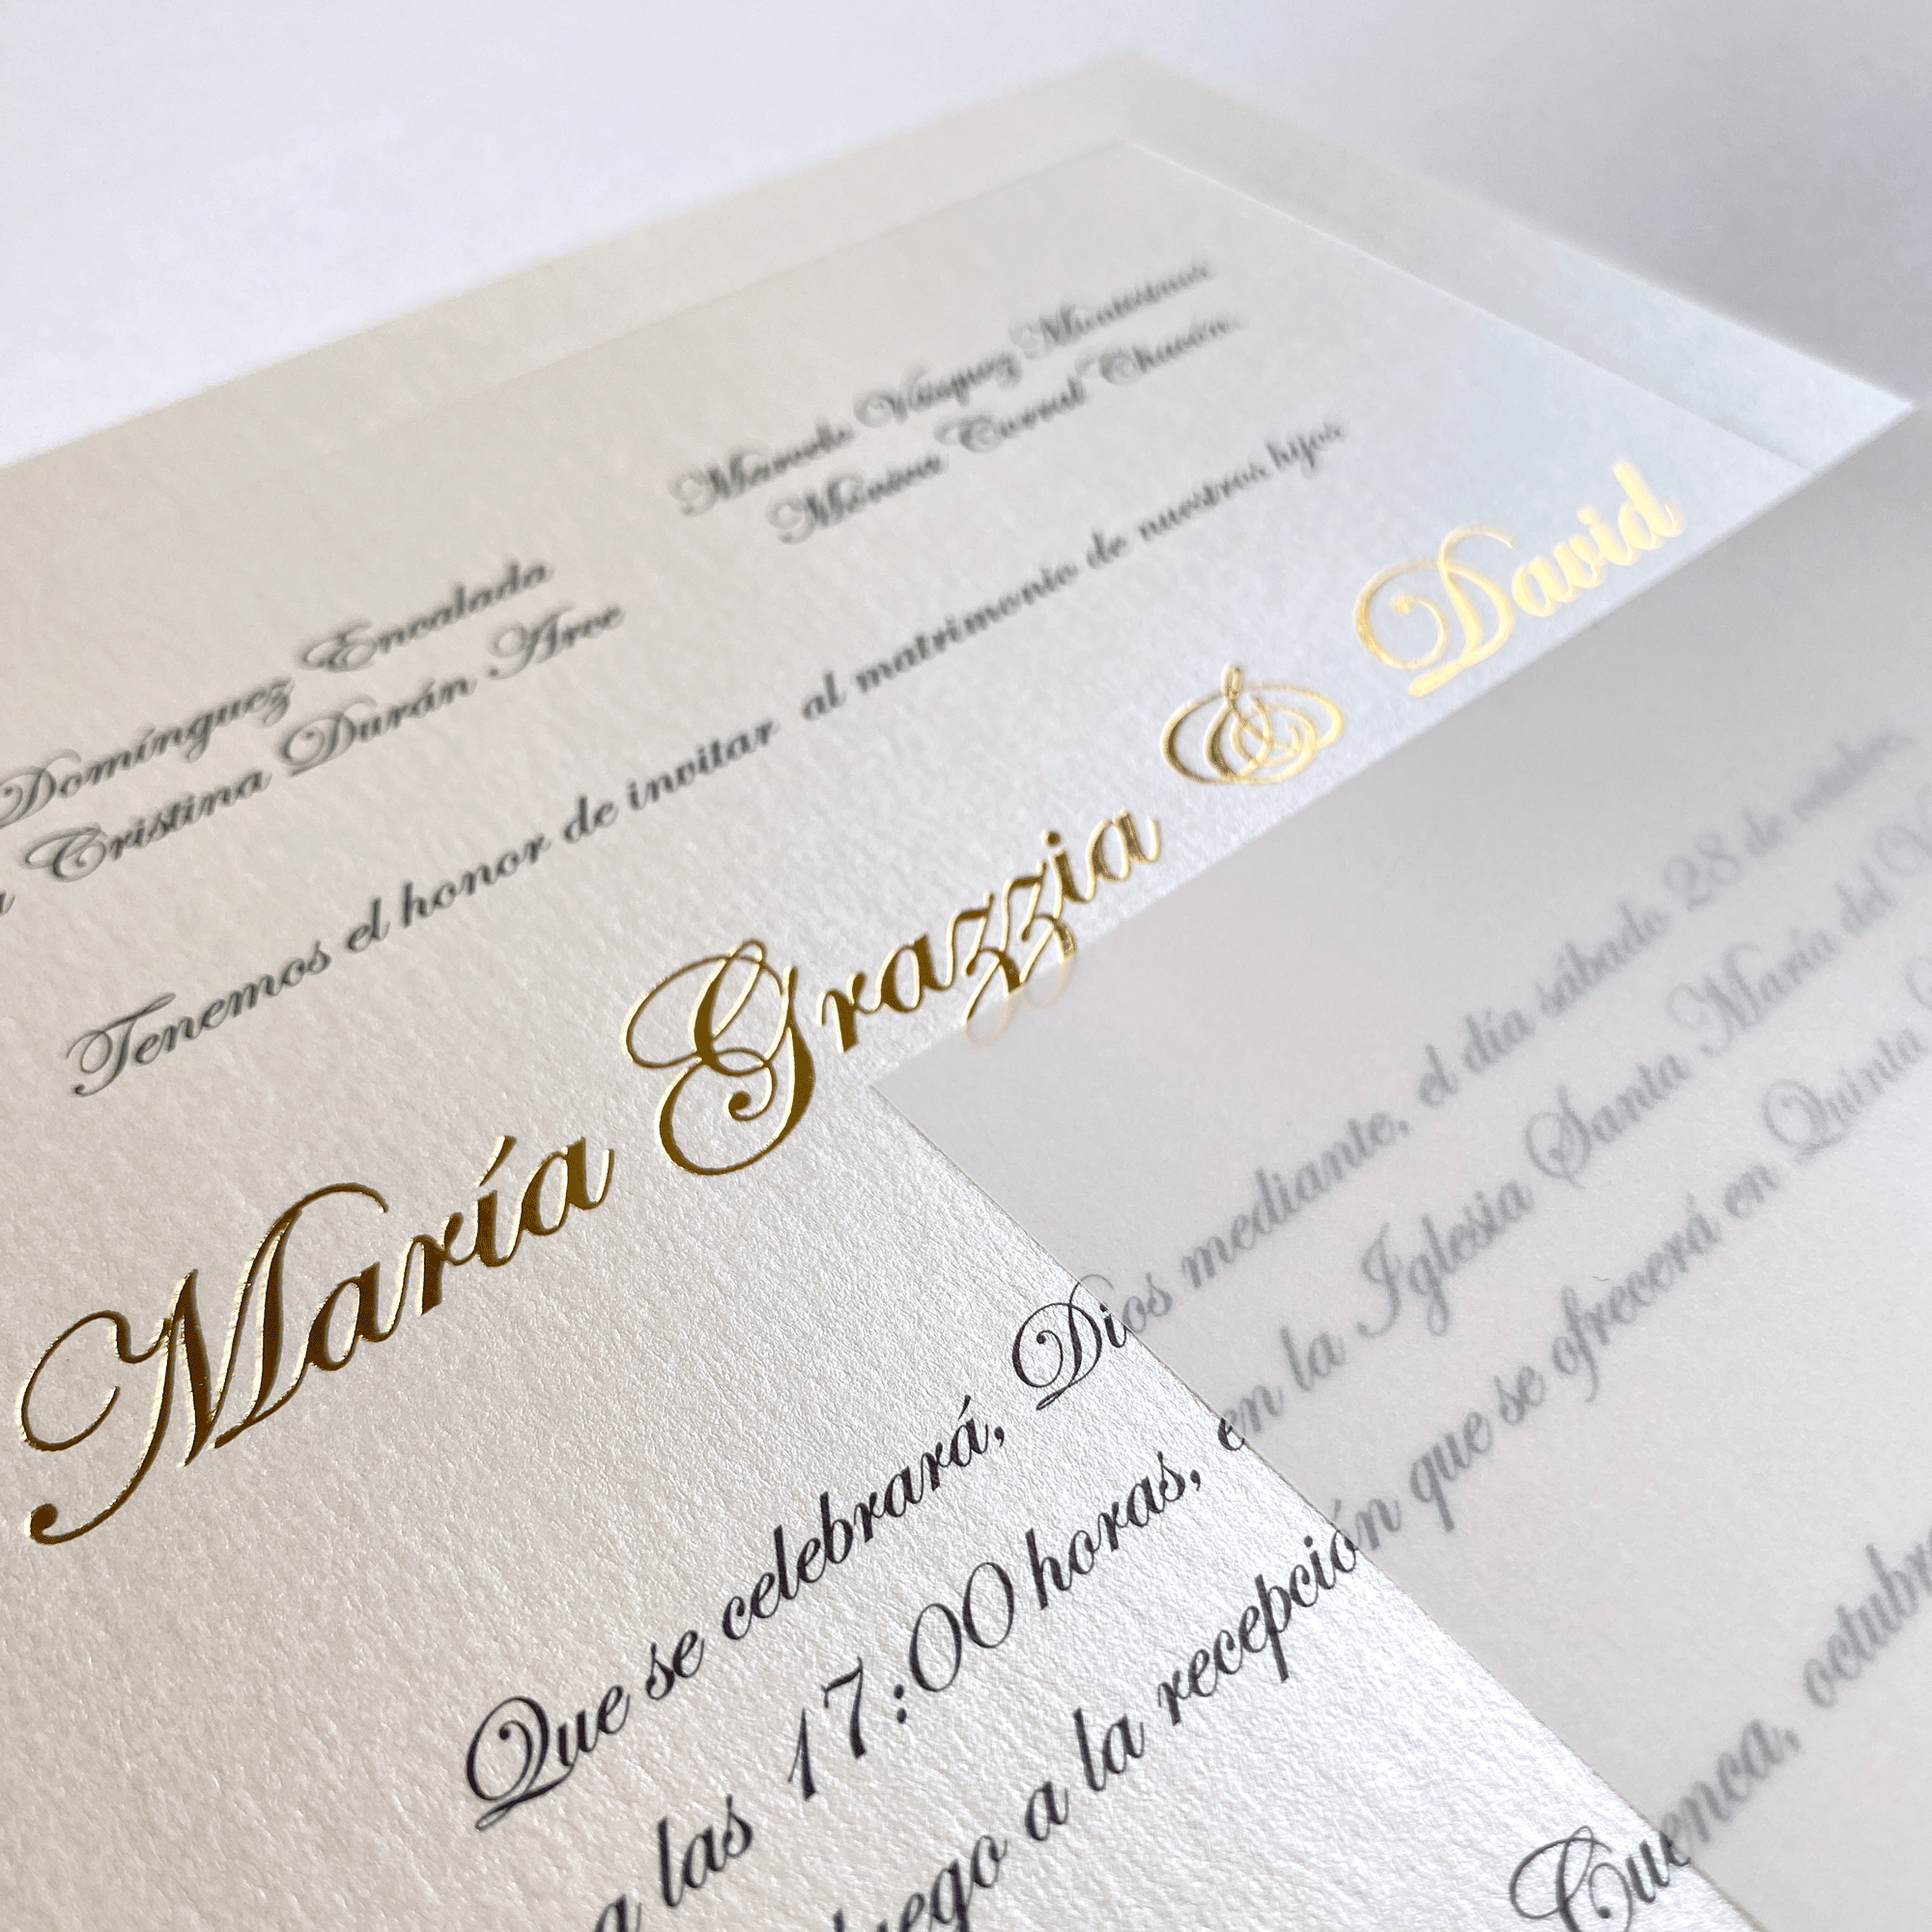 Domínguez Encalada
Cristina Durán Arce
Marcelo Vásquez
Mónica Corral Chacón
Tenemos el honor de invitar al matrimonio de nuestros hijos
María Grazzia & David
Que se celebrará, Dios mediante, el día sábado 28 de octubre
a las 17:00 horas, en la Iglesia Santa María del
a la recepción que se ofrecerá en Quinta
Cuenca,